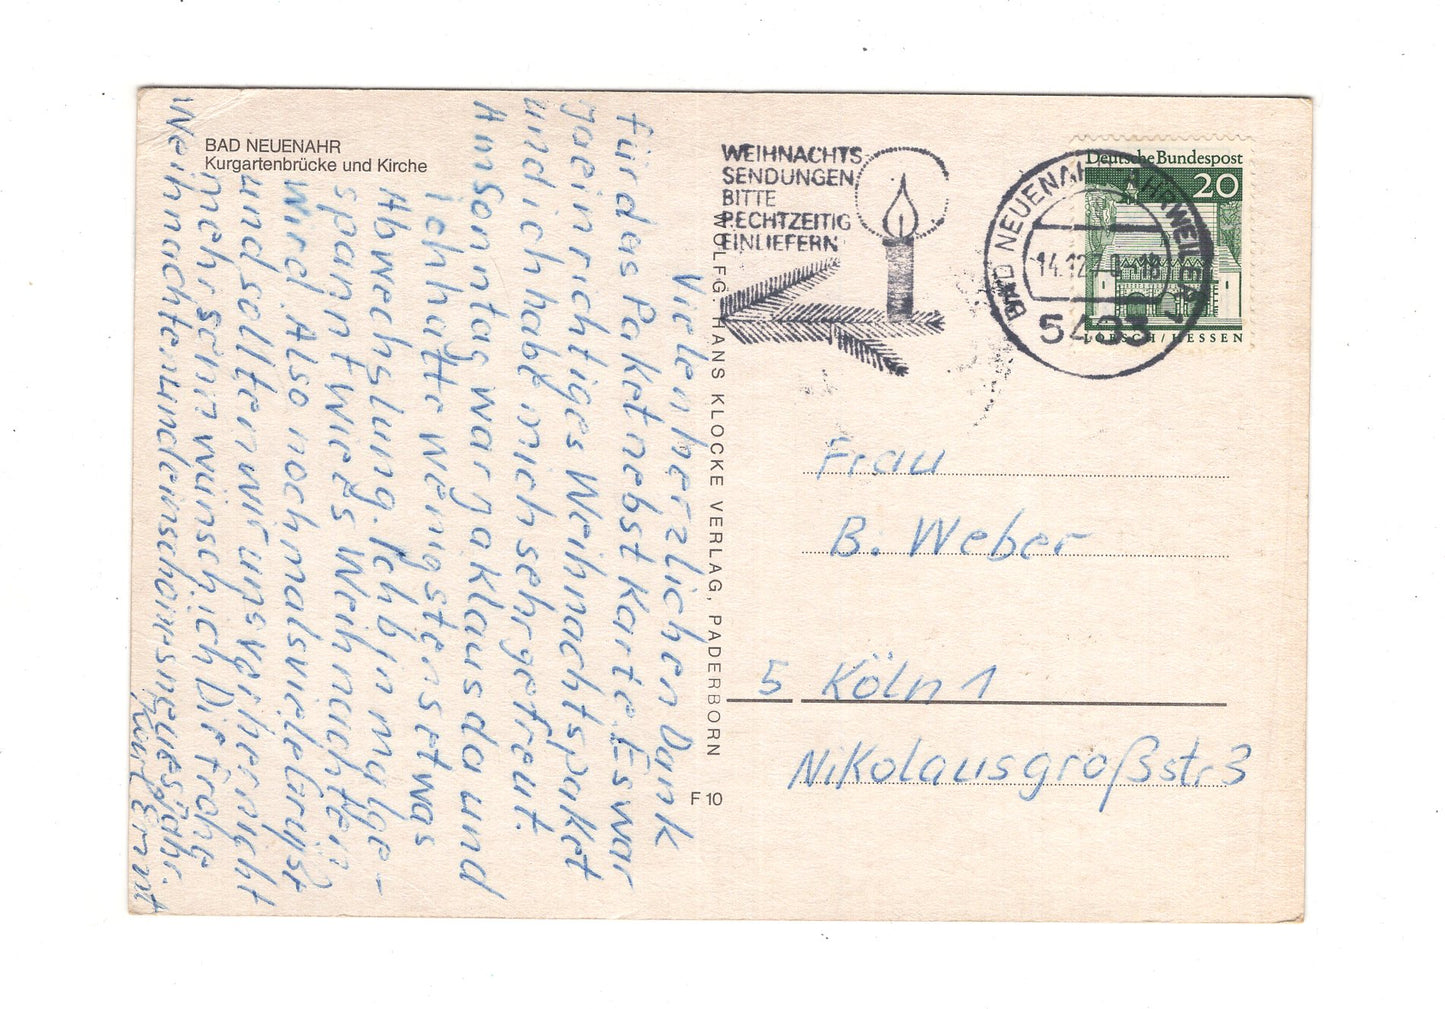 BAD NEUENAHR
Kurgartenbrücke und Kirche
Vielen herzlichen Dank
für das Paket nebst Karte. Es war
ja ein richtiges Weihnachtspaket
und ich habe mich sehr gefreut.
Am Sonntag war ja Klaus da und
ich hatte wenigstens etwas
Abwechslung. Ich bin mal ge-
spannt wie es Weihnachten
wird. Also nochmals viele Grüße
und sollten wir uns vorher nicht
mehr sehn wünsch ich Dir frohe
Weihnachten und ein schönes neues Jahr.
WOLFG. HANS KLOCKE VERLAG, PADERBORN
F 10
WEIHNACHTS-
SENDUNGEN
BITTE
RECHTZEITIG
EINLIEFERN
BAD NEUENAHR-AHRWEILER 1
14.12.
5483
Deutsche Bundespost
20
LORSCH/HESSEN
Frau
B. Weber
5 Köln 1
Nikolausgroßstr 3